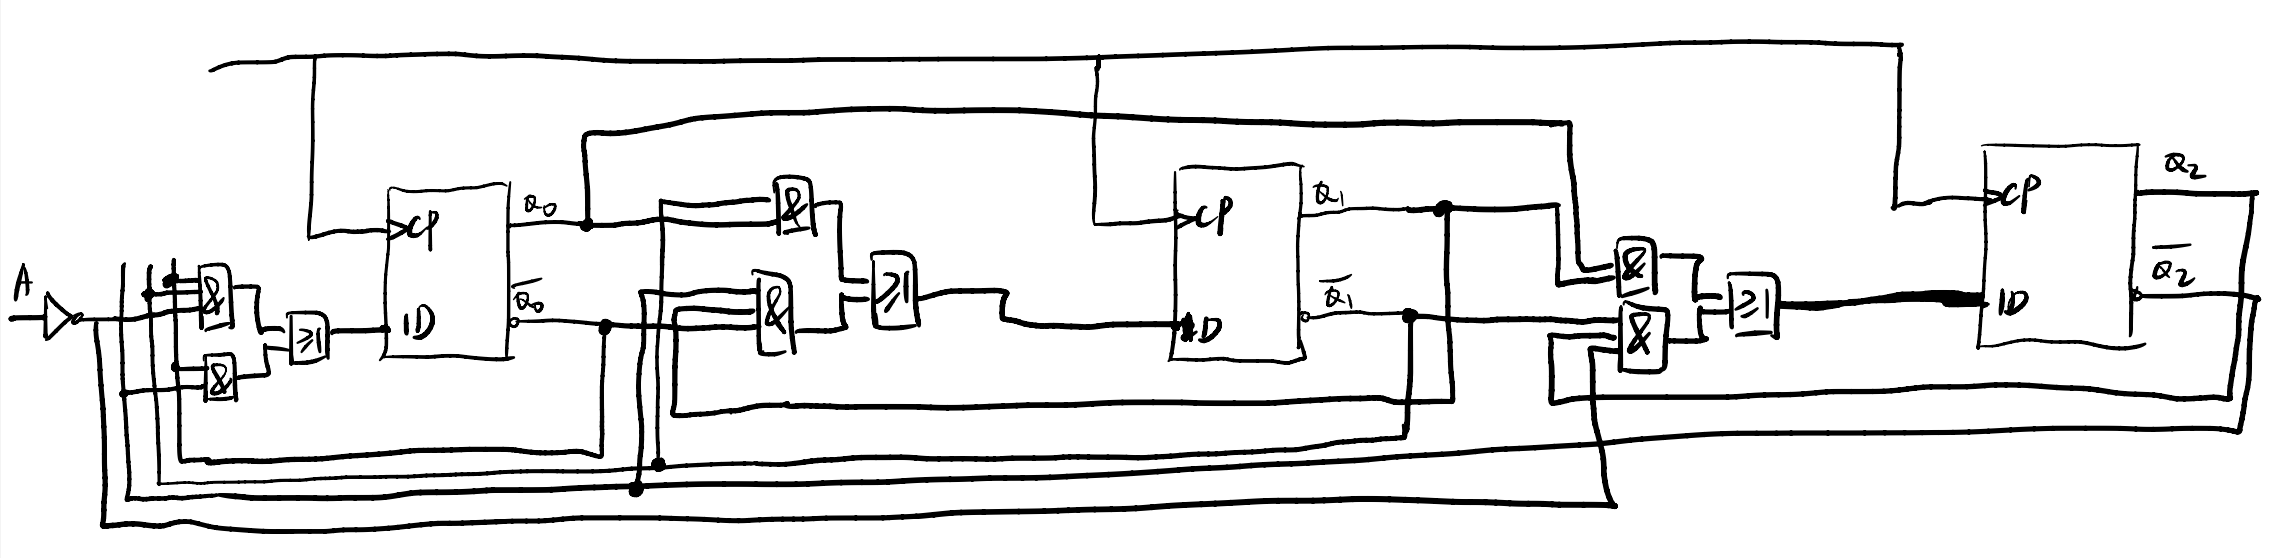 A
&
&
≥1
CP
1D
Q0
Q̅0
&
&
≥1
CP
1D
Q1
Q̅1
&
&
≥1
CP
1D
Q2
Q̅2